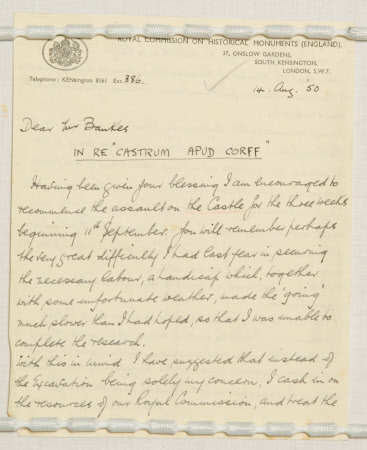 ROYAL COMMISSION ON HISTORICAL MONUMENTS (ENGLAND),
37, ONSLOW GARDENS,
SOUTH KENSINGTON,
LONDON, S.W.7.
Telephone: KENsington 8161 Ext. 386
14. Aug. '50
Dear Mr Bankes
IN RE "CASTRUM APUD CORFF"
Having been given your blessing I am encouraged to
recommence the assault on the Castle for the three weeks
beginning 11th September. You will remember perhaps
the very great difficulty I had last year in securing
the necessary labour, a handicap which, together
with some unfortunate weather, made the 'going'
much slower than I had hoped, so that I was unable to
complete the research.
With this in mind I have suggested that instead of
the Excavation being solely my concern, I cash in on
the resources of our Royal Commission, and treat the